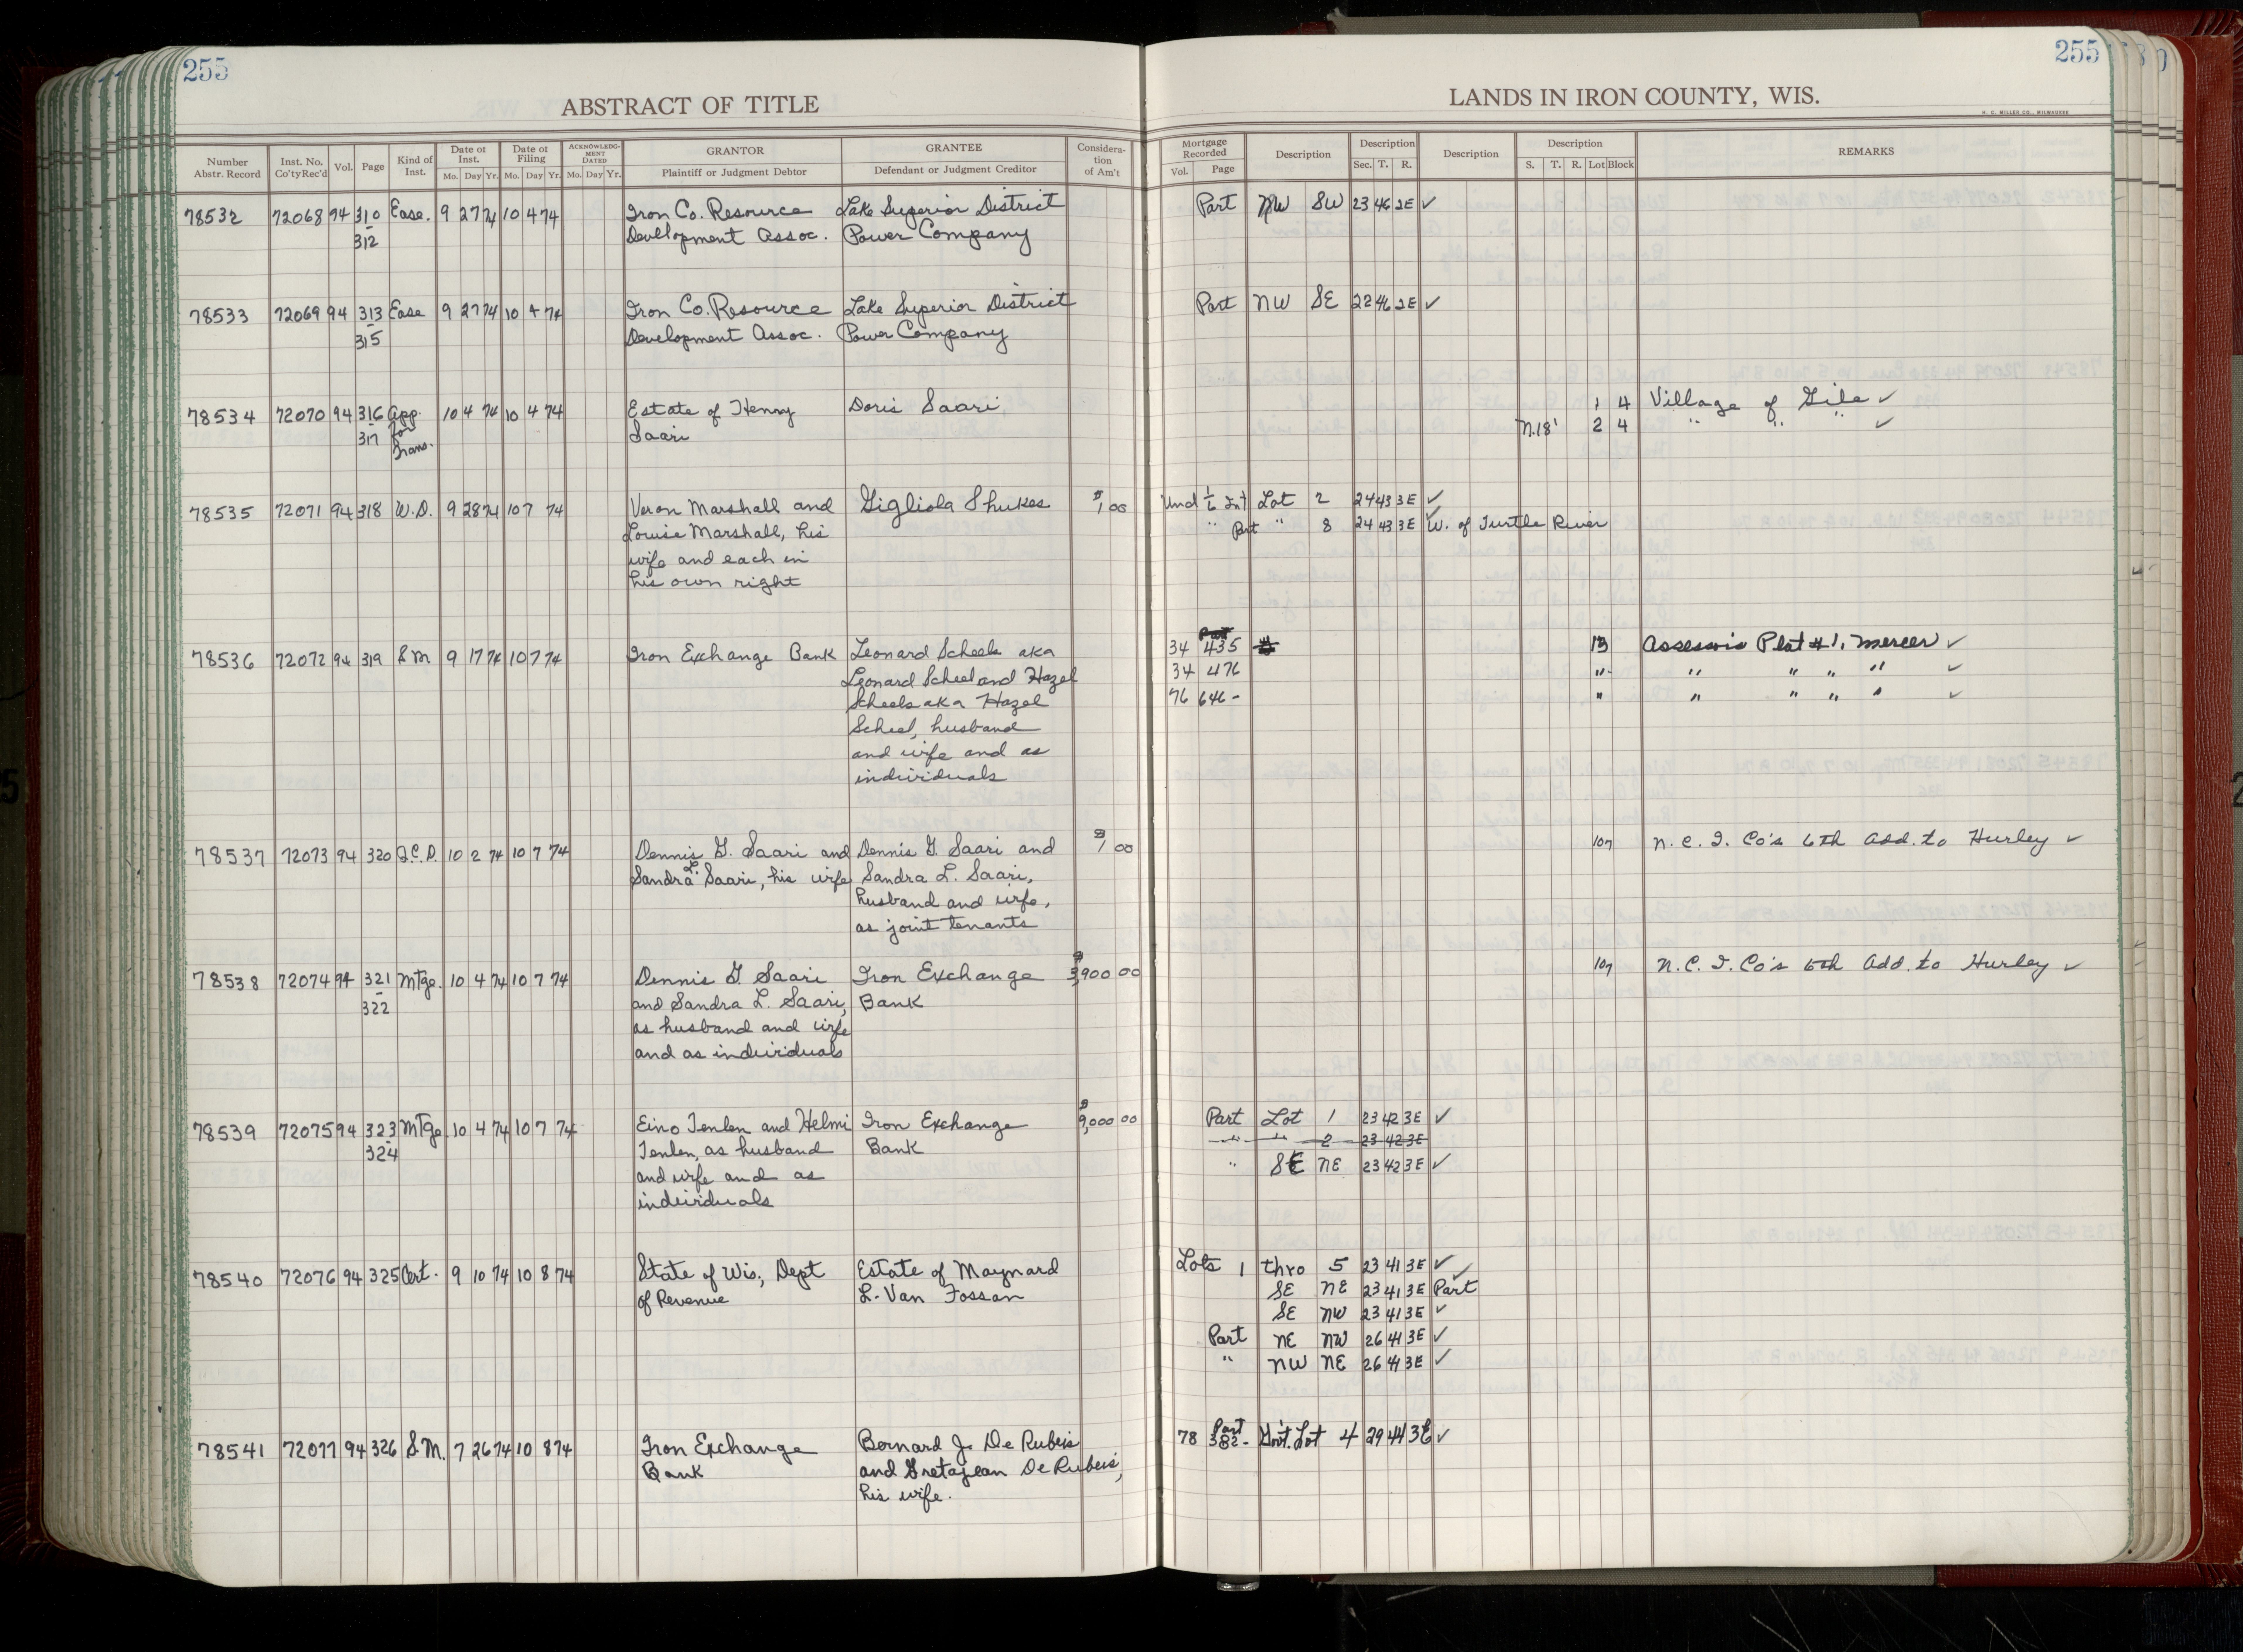 255
255
ABSTRACT OF TITLE
LANDS IN IRON COUNTY, WIS.
H. C. MILLER CO., MILWAUKEE
Number Abstr. Record Inst. No. Co'ty Rec'd Vol. Page Kind of Inst. Date of Inst. Mo. Day Yr. Date of Filing Mo. Day Yr. ACKNOWLEDGMENT DATED Mo. Day Yr. GRANTOR Plaintiff or Judgment Debtor GRANTEE Defendant or Judgment Creditor Consideration of Am't Mortgage Recorded Vol. Page Description Description Sec. T. R. Description Description S. T. R. Lot Block REMARKS
78532 72068 94 310 Ease. 9 27 74 10 4 74 Iron Co. Resource Lake Superior District Part NW SW 23 46 2E ✓
- 312 Development Assoc. Power Company
78533 72069 94 313 Ease 9 27 74 10 4 74 Iron Co. Resource Lake Superior District Part NW SE 22 46 2E ✓
- 315 Development Assoc. Power Company
78534 72070 94 316 App. 10 4 74 10 4 74 Estate of Henry Doris Saari 1 4 Village of Gile ✓
- 317 for Saari N.18' 2 4 " " " ✓
Trans.
78535 72071 94 318 W.D. 9 28 74 10 7 74 Veron Marshall and Gigliola Shukes $1 00 Und 1/6 Int Lot 2 24 43 3E ✓
Louise Marshall, his " Part " 8 24 43 3E ✓ W. of Turtle River
wife and each in
his own right
78536 72072 94 319 S.M 9 17 74 10 7 74 Iron Exchange Bank Leonard Scheels aka 34 435 13 Assessor's Plat #1, Mercer ✓
Leonard Scheel and Hazel 34 476 " " " " " ✓
Scheels aka Hazel 76 646 - " " " " " ✓
Scheel, husband
and wife and as
individuals
78537 72073 94 320 Q.C.D. 10 2 74 10 7 74 Dennis G. Saari and Dennis G. Saari and $1 00 107 N.C.I. Co's 6th Add. to Hurley ✓
Sandra L. Saari, his wife Sandra L. Saari,
husband and wife,
as joint tenants
78538 72074 94 321 Mtge. 10 4 74 10 7 74 Dennis G. Saari Iron Exchange $3,900 00 107 N.C.I. Co's 6th Add. to Hurley ✓
- 322 and Sandra L. Saari, Bank
as husband and wife
and as individuals
78539 72075 94 323 Mtge. 10 4 74 10 7 74 Eino Tenlen and Helmi Iron Exchange $9,000 00 Part Lot 1 23 42 3E ✓
- 324 Tenlen, as husband Bank " " 2 23 42 3E
and wife and as " SE NE 23 42 3E ✓
individuals
78540 72076 94 325 Cert. 9 10 74 10 8 74 State of Wis., Dept Estate of Maynard Lots 1 thro 5 23 41 3E ✓
of Revenue L. Van Fossan SE NE 23 41 3E Part ✓
SE NW 23 41 3E ✓
Part NE NW 26 41 3E ✓
" NW NE 26 41 3E ✓
78541 72077 94 326 S.M. 7 26 74 10 8 74 Iron Exchange Bernard J. De Rubeis 78 382 - Part Gov't. Lot 4 29 44 3E ✓
Bank and Gretajean De Rubeis,
his wife.